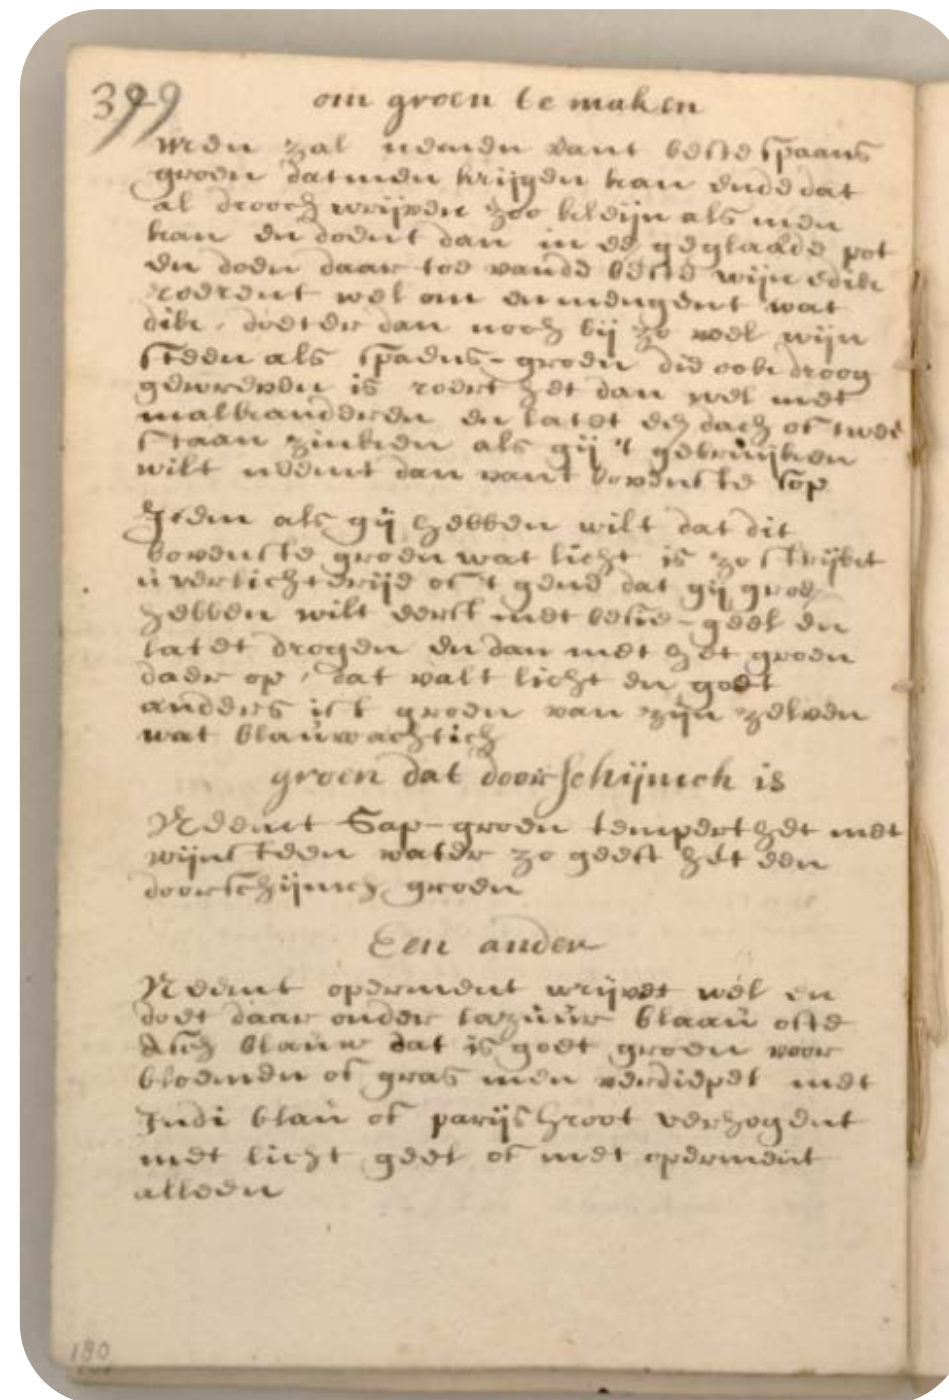 399
om groen te maken
Men zal nemen vant beste spaans
groen datmen krijgen kan ende dat
al drooch wrijven zoo kleijn als men
kan en doent dan in eē geglaasde pot
en doen daar toe vande beste wijn edik
roerent wel om en mengent wat
dik, doeter dan noch bij zo veel wijn
steen als spaens-groen die ook droog
gewreven is roert het dan wel met
malkanderen en latet eē dach of twee
staan zinken als gij 't gebruijken
wilt neemt dan vant bovenste sop
Item als gij hebben wilt dat dit
bovenste groen wat licht is zo strijkt
u verlichterije of 't gene dat gij groē
hebben wilt eerst met besie-geel en
latet drogen en dan met het groen
daer op, dat valt licht en goet
anders ist groen van zijn zelven
wat blauwachtich
groen dat doorschijnich is
Neemt Sap-groen tempert het met
wijnsteen water zo geeft het een
doorschijnich groen
Een ander
Neemt operment wrijvet wel en
doet daar onder lazuur blaau ofte
Asch blauw dat is goet groen voor
bloemen of gras men verdiepet met
Indi blau of parijs hroot verhogent
met licht geel of met operment
alleen
180